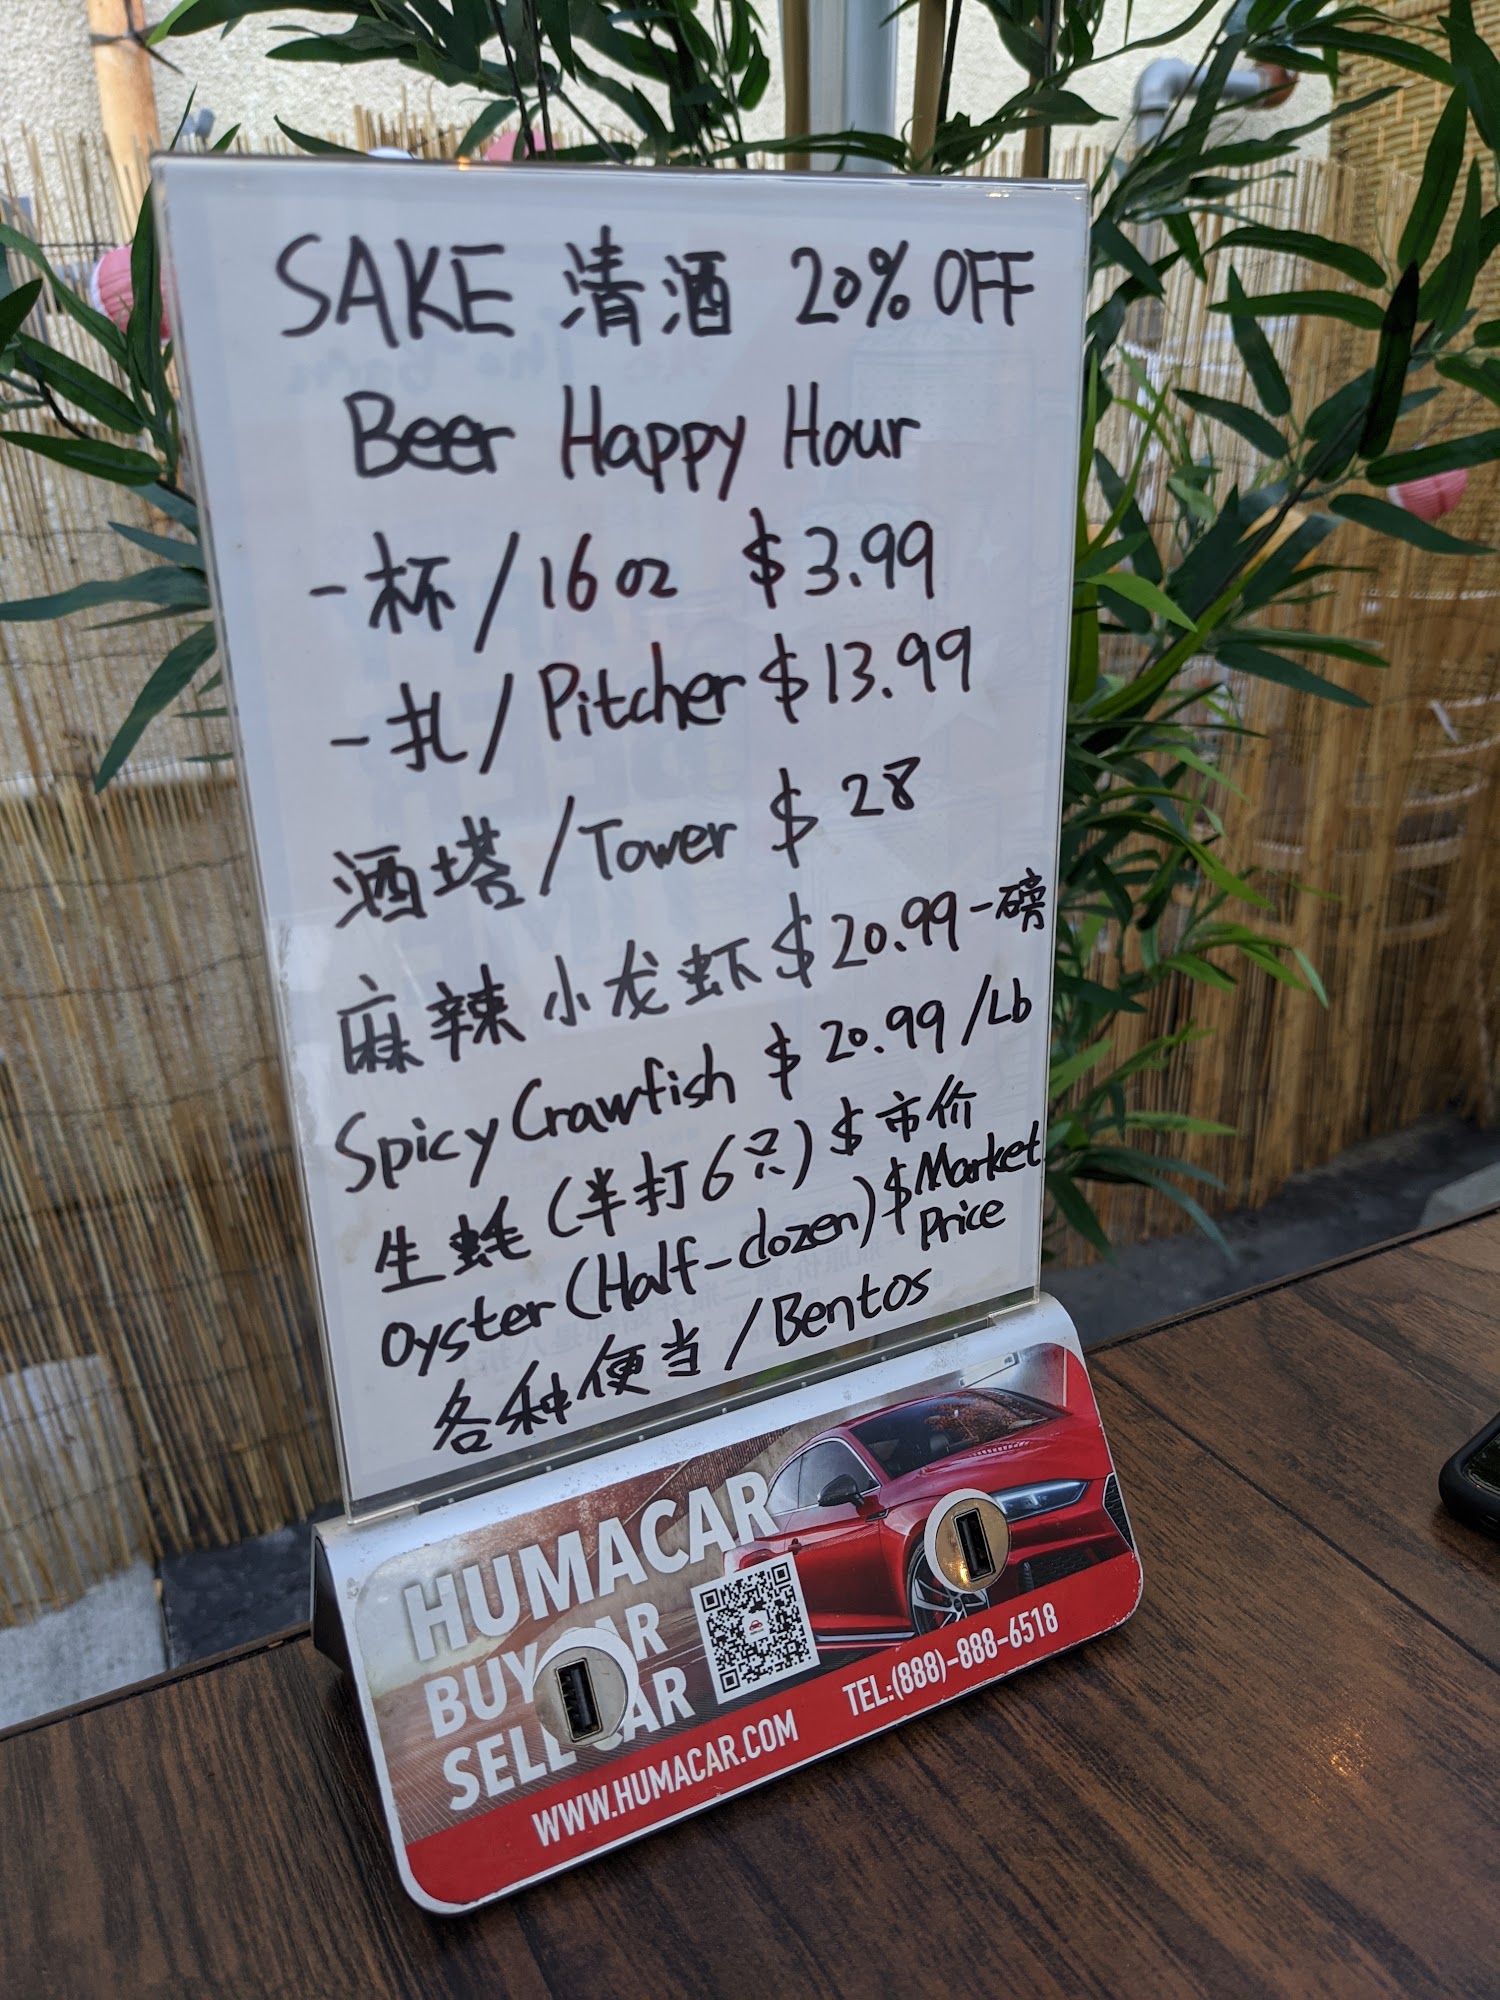 SAKE 清酒 20% OFF
Beer Happy Hour
一杯/16oz $3.99
一扎/Pitcher $13.99
酒塔/Tower $28
麻辣小龙虾 $20.99一磅
Spicy Crawfish $20.99/Lb
生蚝(半打6只) $市价
Oyster(Half-dozen) $Market Price
各种便当/Bentos
HUMACAR
BUY CAR
SELL CAR
WWW.HUMACAR.COM TEL:(888)-888-6518